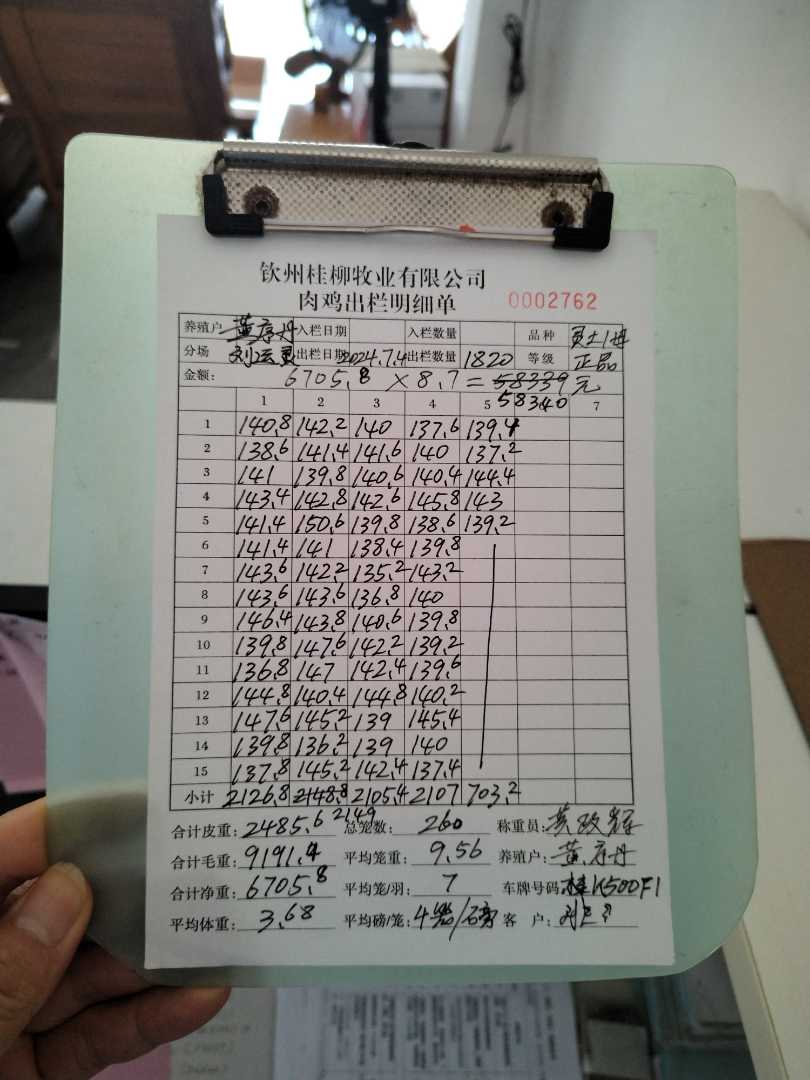 钦州桂柳牧业有限公司
肉鸡出栏明细单 0002762
养殖户 黄序丹 入栏日期 入栏数量 品种
分场 出栏日期 2024.7.4 出栏数量 1820 等级 正品
金额: 6705.8 × 8.7 = 58339 元
58340
1 2 3 4 5 7
1 140.8 142.2 140 137.6 139.4
2 138.6 141.4 141.6 140 137.2
3 141 139.8 140.6 140.4 144.4
4 143.4 142.8 142.6 145.8 143
5 141.4 150.6 139.8 138.6 139.2
6 141.4 141 138.4 139.8
7 143.6 142.2 135.2 143.2
8 143.6 143.6 136.8 140
9 146.4 143.8 140.6 139.8
10 139.8 147.6 142.2 139.2
11 136.8 147 142.4 139.6
12 144.8 140.4 144.8 140.2
13 147.6 145.2 139 145.4
14 139.8 136.2 139 140
15 137.8 145.2 142.4 137.4
小计 2126.8 2148.8 2105.4 2107 703.2
2149
合计皮重: 2485.6 总笼数: 260 称重员:
合计毛重: 9191.4 平均笼重: 9.56 养殖户: 黄序丹
合计净重: 6705.8 平均笼/羽: 7 车牌号码 桂K500F1
平均体重: 3.68 平均磅/笼: 4笼/磅 客 户: